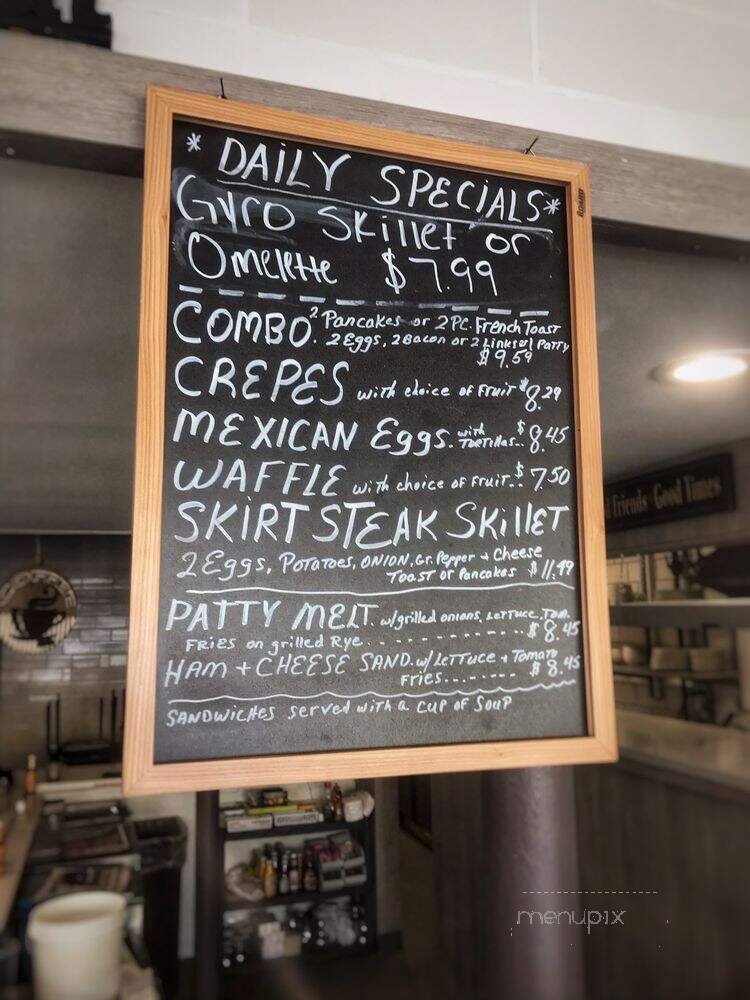 * DAILY SPECIALS *
Gyro Skillet or
Omelette $7.99
COMBO. 2 Pancakes or 2 PC. French Toast
2 Eggs, 2 Bacon or 2 Links or 1 Patty
$9.59
CREPES with choice of Fruit $8.29
MEXICAN Eggs. with Tortillas.. $8.45
WAFFLE with choice of Fruit.. $7.50
SKIRT STEAK SKillET
2 Eggs, Potatoes, ONION, Gr. Pepper + Cheese
Toast or Pancakes $11.99
PATTY MELT. w/grilled onions, LETTUCE, Tom.
FRIES on grilled Rye. . . . . . . . . . . . $8.45
HAM + CHEESE SAND. w/ LETTUCE + Tomato
Fries........ $8.45
SANDWICHES served with a cup of Soup
Friends · Good Times
menupix